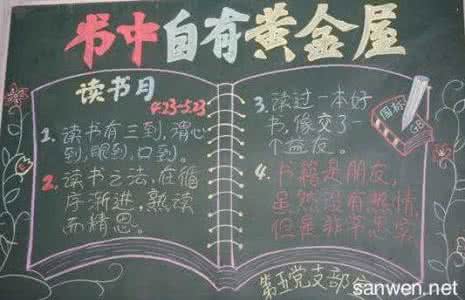 书中自有黄金屋
读书月
4.23-5.23
1. 读书有三到,谓心
到,眼到,口到。
2. 读书之法,在循
序渐进,熟读
而精思。
3. 读过一本好
书,像交了一
个益友。
国标
GB
4. 书籍是朋友,
虽然没有热情,
但是非常忠实
第五党支部
sanwen.net